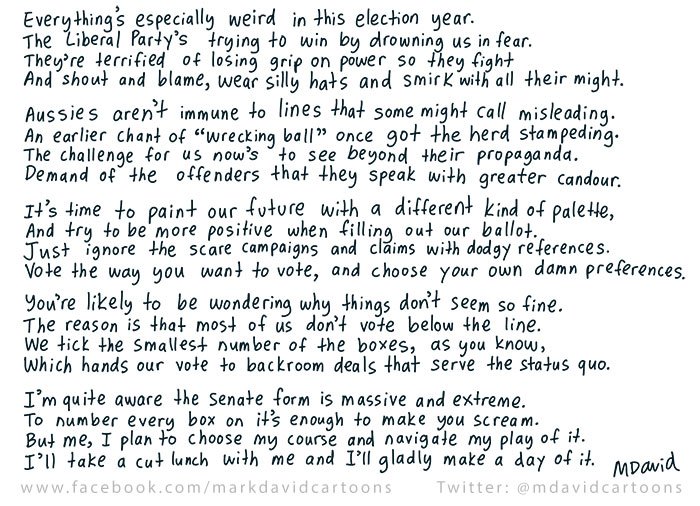 Everything's especially weird in this election year.
The Liberal Party's trying to win by drowning us in fear.
They're terrified of losing grip on power so they fight
And shout and blame, wear silly hats and smirk with all their might.
Aussies aren't immune to lines that some might call misleading.
An earlier chant of "wrecking ball" once got the herd stampeding.
The challenge for us now's to see beyond their propaganda.
Demand of the offenders that they speak with greater candour.
It's time to paint our future with a different kind of palette,
And try to be more positive when filling out our ballot.
Just ignore the scare campaigns and claims with dodgy references.
Vote the way you want to vote, and choose your own damn preferences.
You're likely to be wondering why things don't seem so fine.
The reason is that most of us don't vote below the line.
We tick the smallest number of the boxes, as you know,
Which hands our vote to backroom deals that serve the status quo.
I'm quite aware the Senate form is massive and extreme.
To number every box on it's enough to make you scream.
But me, I plan to choose my course and navigate my play of it.
I'll take a cut lunch with me and I'll gladly make a day of it. MDavid
www.facebook.com/markdavidcartoons Twitter: @mdavidcartoons